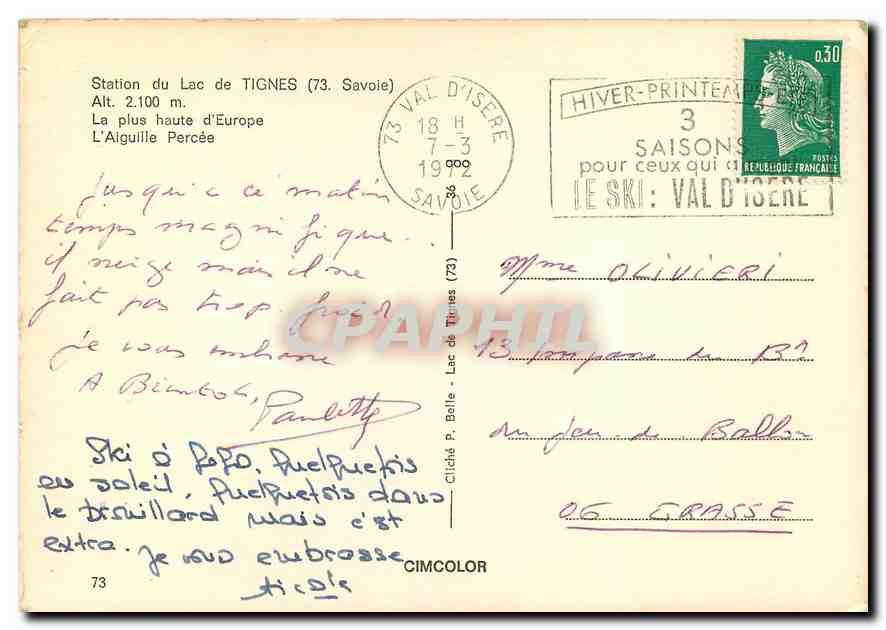 Station du Lac de TIGNES (73. Savoie)
Alt. 2.100 m.
La plus haute d'Europe
L'Aiguille Percée
73 VAL D'ISERE
18 H
7-3
1972
SAVOIE
HIVER-PRINTEMPS-ETE
3
SAISONS
pour ceux qui
LE SKI: VAL D'ISERE
0,30
POSTES
REPUBLIQUE FRANÇAISE
jusqu'a ce matin
temps magnifique...
il neige mais il ne
fait pas trop froid,
je vous embrasse
A Bientot,
Paulette
Ski à gogo. Quelquefois
en soleil. Quelquefois dans
le brouillard mais c'est
extra. Je vous embrasse
Cliché P. Belle - Lac de Tignes (73) 36 000
Mme OLIVIERI
13 impasse du
du jeu de Ballon
06 GRASSE
CPAPHIL
73
CIMCOLOR